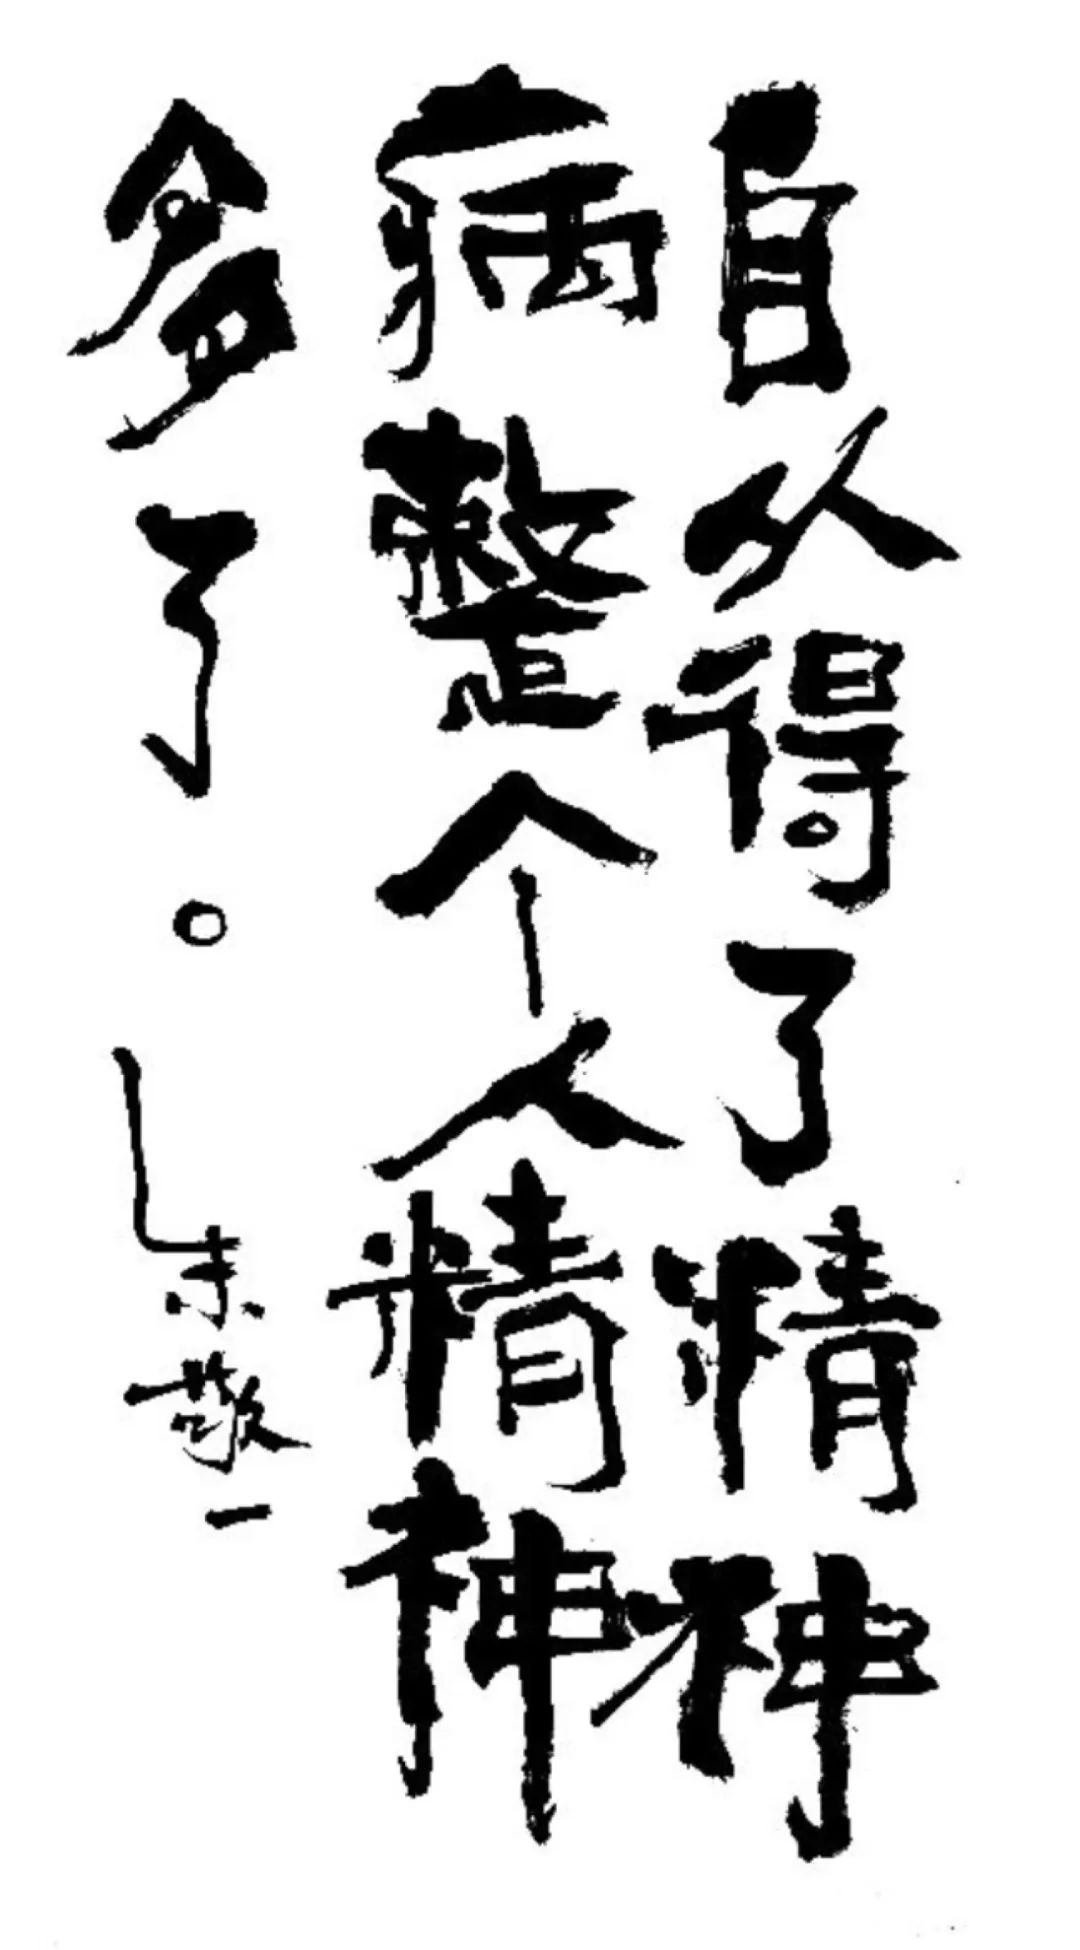 自从得了精神
病整个人精神
多了。朱敬一